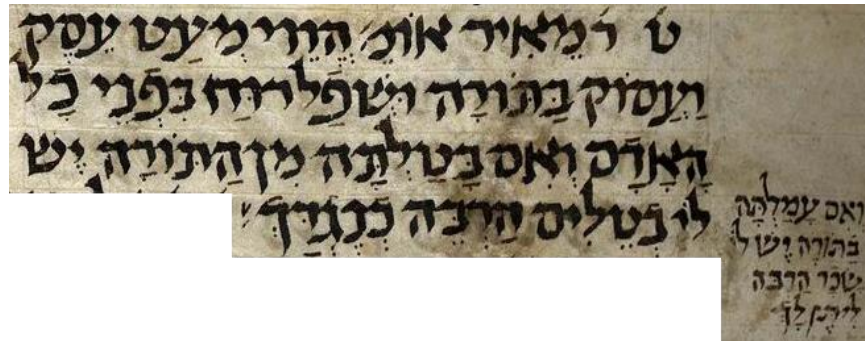 ט ר' מֵאִיר אוֹמֵ' הֱוֵוי מְעַט עֵסֶק
וַעֲסוֹק בַּתּוֹרָה וּשְׁפַל רוּחַ בִּפְנֵי כָל
הָאָדָם וְאִם בָּטַלְתָּה מִן הַתּוֹרָה יֶשׁ
לִי בְּטֵלִים הַרְבֵּה כְּנֶגְדָּךְ
וְאִם עָמַלְתָּה
בַּתּוֹרָה יֶשׁ לִי
שָׂכָר הַרְבֵּה
לִיתֵּן לָךְ